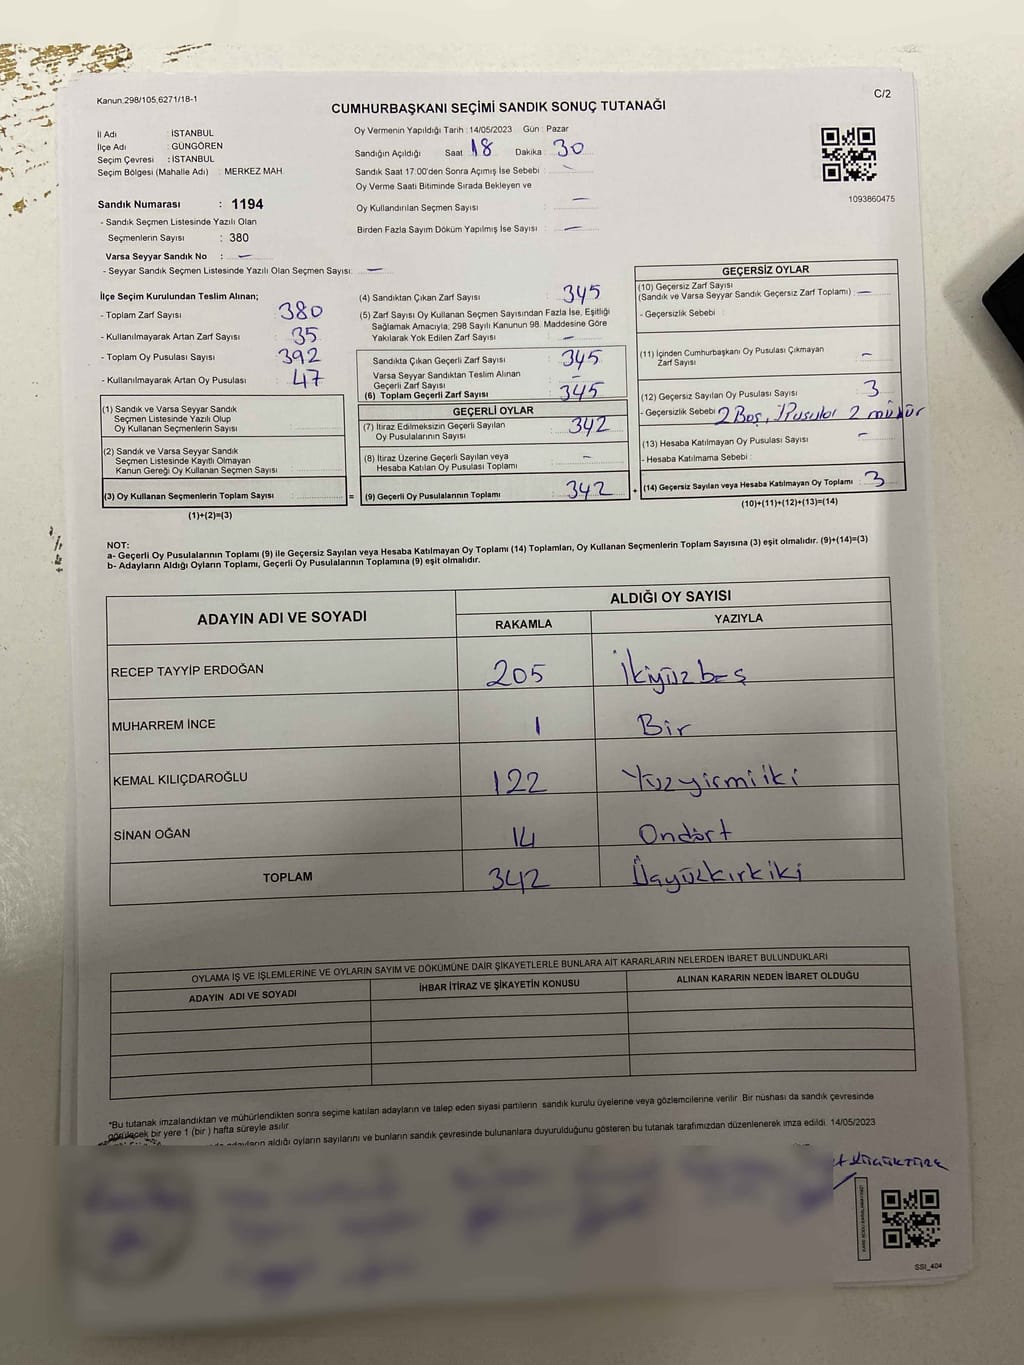 Kanun.298/105,6271/18-1
C/2
CUMHURBAŞKANI SEÇİMİ SANDIK SONUÇ TUTANAĞI
İl Adı : İSTANBUL
İlçe Adı : GÜNGÖREN
Seçim Çevresi : İSTANBUL
Seçim Bölgesi (Mahalle Adı) : MERKEZ MAH
Oy Vermenin Yapıldığı Tarih : 14/05/2023 Gün : Pazar
Sandığın Açıldığı Saat 18 Dakika : 30
Sandık Saat 17:00'den Sonra Açımış İse Sebebi : -
Oy Verme Saati Bitiminde Sırada Bekleyen ve
Oy Kullandırılan Seçmen Sayısı : -
Birden Fazla Sayım Döküm Yapılmış İse Sayısı : -
1093860475
Sandık Numarası : 1194
- Sandık Seçmen Listesinde Yazılı Olan
Seçmenlerin Sayısı : 380
Varsa Seyyar Sandık No : -
- Seyyar Sandık Seçmen Listesinde Yazılı Olan Seçmen Sayısı: -
İlçe Seçim Kurulundan Teslim Alınan;
- Toplam Zarf Sayısı : 380
- Kullanılmayarak Artan Zarf Sayısı : 35
- Toplam Oy Pusulası Sayısı : 392
- Kullanılmayarak Artan Oy Pusulası : 47
(1) Sandık ve Varsa Seyyar Sandık
Seçmen Listesinde Yazılı Olup
Oy Kullanan Seçmenlerin Sayısı :
(2) Sandık ve Varsa Seyyar Sandık
Seçmen Listesinde Kayıtlı Olmayan
Kanun Gereği Oy Kullanan Seçmen Sayısı :
(3) Oy Kullanan Seçmenlerin Toplam Sayısı : =
(1)+(2)=(3)
(4) Sandıktan Çıkan Zarf Sayısı : 345
(5) Zarf Sayısı Oy Kullanan Seçmen Sayısından Fazla İse, Eşitliği
Sağlamak Amacıyla, 298 Sayılı Kanunun 98. Maddesine Göre
Yakılarak Yok Edilen Zarf Sayısı : -
Sandıkta Çıkan Geçerli Zarf Sayısı : 345
Varsa Seyyar Sandıktan Teslim Alınan
Geçerli Zarf Sayısı : -
(6) Toplam Geçerli Zarf Sayısı : 345
GEÇERLİ OYLAR
(7) İtiraz Edilmeksizin Geçerli Sayılan
Oy Pusulalarının Sayısı : 342
(8) İtiraz Üzerine Geçerli Sayılan veya
Hesaba Katılan Oy Pusulası Toplamı : -
(9) Geçerli Oy Pusulalarının Toplamı : 342 +
GEÇERSİZ OYLAR
(10) Geçersiz Zarf Sayısı
(Sandık ve Varsa Seyyar Sandık Geçersiz Zarf Toplamı) : -
- Geçersizlik Sebebi :
(11) İçinden Cumhurbaşkanı Oy Pusulası Çıkmayan
Zarf Sayısı : -
(12) Geçersiz Sayılan Oy Pusulası Sayısı : 3
- Geçersizlik Sebebi : 2 Boş, 1 Pusula 2 mühür
(13) Hesaba Katılmayan Oy Pusulası Sayısı : -
- Hesaba Katılmama Sebebi :
(14) Geçersiz Sayılan veya Hesaba Katılmayan Oy Toplamı : 3
(10)+(11)+(12)+(13)=(14)
NOT:
a- Geçerli Oy Pusulalarının Toplamı (9) ile Geçersiz Sayılan veya Hesaba Katılmayan Oy Toplamı (14) Toplamları, Oy Kullanan Seçmenlerin Toplam Sayısına (3) eşit olmalıdır. (9)+(14)=(3)
b- Adayların Aldığı Oyların Toplamı, Geçerli Oy Pusulalarının Toplamına (9) eşit olmalıdır.
ADAYIN ADI VE SOYADI ALDIĞI OY SAYISI
RAKAMLA YAZIYLA
RECEP TAYYİP ERDOĞAN 205 İkiyüzbeş
MUHARREM İNCE 1 Bir
KEMAL KILIÇDAROĞLU 122 Yüzyirmiiki
SİNAN OĞAN 14 Ondört
TOPLAM 342 Üçyüzkırkiki
OYLAMA İŞ VE İŞLEMLERİNE VE OYLARIN SAYIM VE DÖKÜMÜNE DAİR ŞİKAYETLERLE BUNLARA AİT KARARLARIN NELERDEN İBARET BULUNDUKLARI
ADAYIN ADI VE SOYADI İHBAR İTİRAZ VE ŞİKAYETİN KONUSU ALINAN KARARIN NEDEN İBARET OLDUĞU
*Bu tutanak imzalandıktan ve mühürlendikten sonra seçime katılan adayların ve talep eden siyasi partilerin sandık kurulu üyelerine veya gözlemcilerine verilir. Bir nüshası da sandık çevresinde
görülecek bir yere 1 (bir ) hafta süreyle asılır.
adayların aldığı oyların sayılarını ve bunların sandık çevresinde bulunanlara duyurulduğunu gösteren bu tutanak tarafımızdan düzenlenerek imza edildi. 14/05/2023
SSI_404